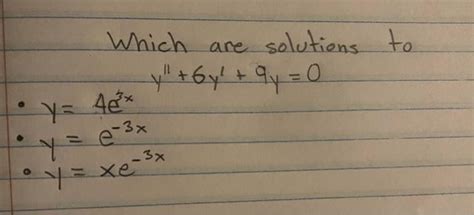 Which are solutions to
y'' + 6y' + 9y = 0
• y = 4e³ˣ
• y = e⁻³ˣ
• y = xe⁻³ˣ